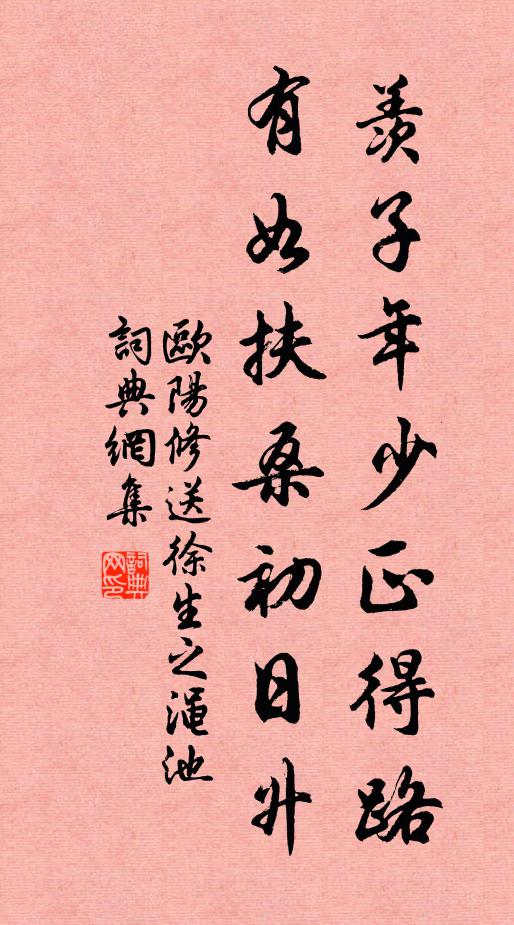 羨子年少正得路
有如扶桑初日升
歐陽修送徐生之澠池
詞典網集
詞典网印